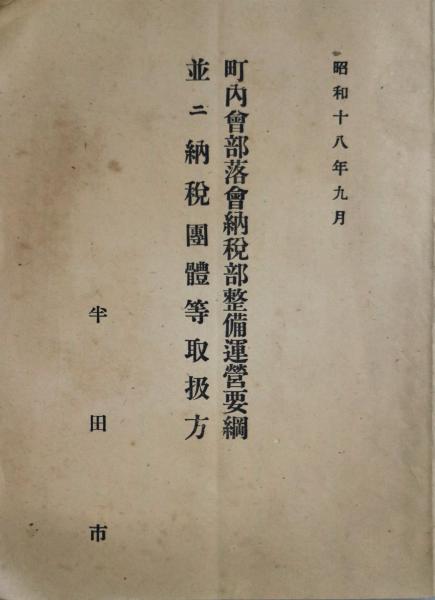 昭和十八年九月
町內會部落會納稅部整備運營要綱
並ニ納稅團體等取扱方
半田市